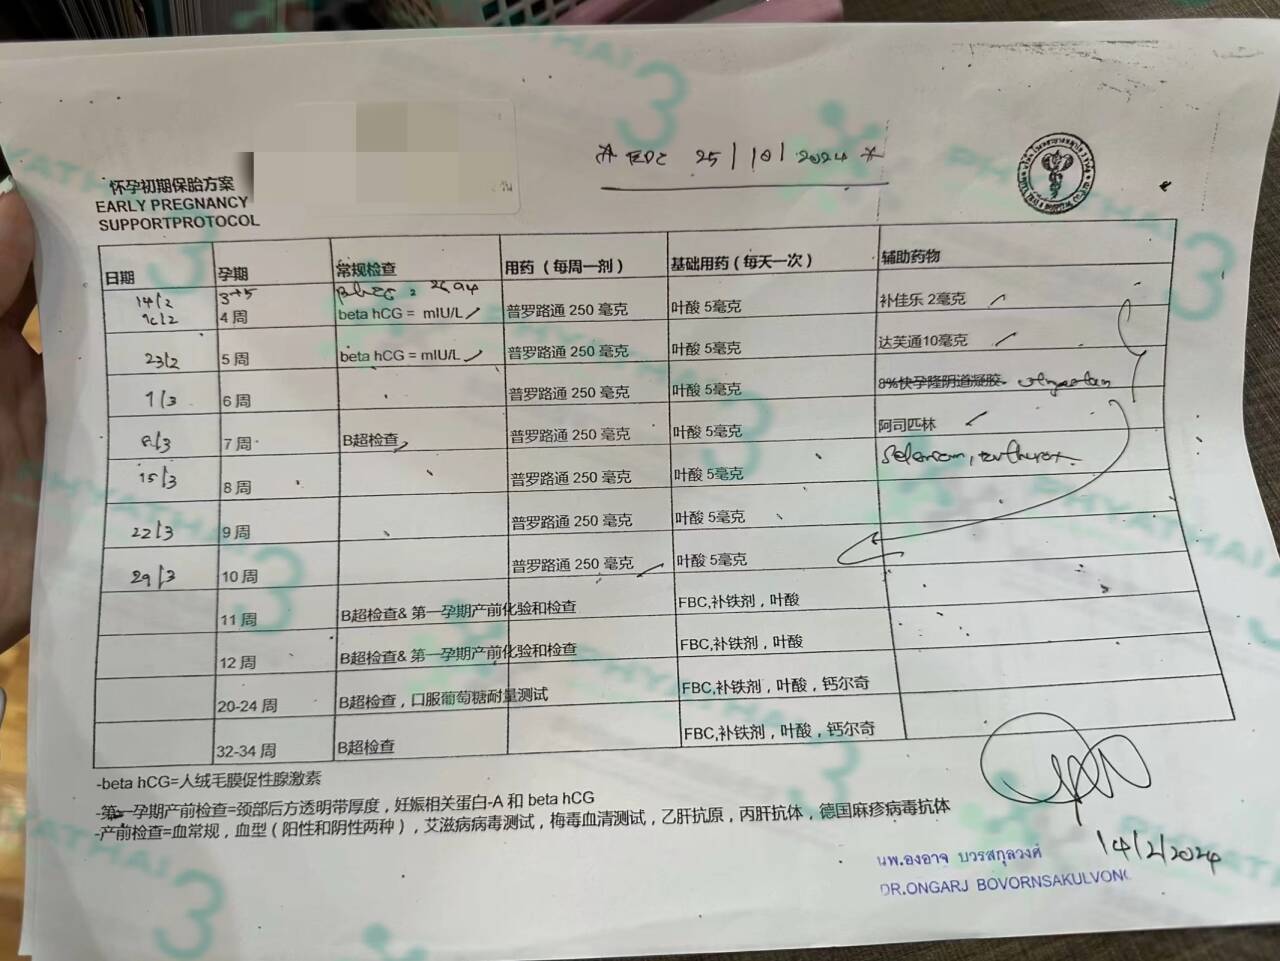 * EDC 25/10/2024 *
怀孕初期保胎方案
EARLY PREGNANCY
SUPPORTPROTOCOL
日期 孕期 常规检查 用药（每周一剂） 基础用药（每天一次） 辅助药物
14/2 3+5
4 周 beta hCG = mIU/L 普罗路通 250 毫克 叶酸 5毫克 补佳乐 2毫克
23/2 5 周 beta hCG = mIU/L 普罗路通 250 毫克 叶酸 5毫克 达芙通10毫克
1/3 6 周 普罗路通 250 毫克 叶酸 5毫克 8%快孕隆阴道凝胶
8/3 7 周 B超检查 普罗路通 250 毫克 叶酸 5毫克 阿司匹林
15/3 8 周 普罗路通 250 毫克 叶酸 5毫克
22/3 9 周 普罗路通 250 毫克 叶酸 5毫克
29/3 10 周 普罗路通 250 毫克 叶酸 5毫克
11 周 B超检查& 第一孕期产前化验和检查 FBC,补铁剂，叶酸
12 周 B超检查& 第一孕期产前化验和检查 FBC,补铁剂，叶酸
20-24 周 B超检查，口服葡萄糖耐量测试 FBC,补铁剂，叶酸，钙尔奇
32-34 周 B超检查 FBC,补铁剂，叶酸，钙尔奇
-beta hCG=人绒毛膜促性腺激素
-第一孕期产前检查=颈部后方透明带厚度，妊娠相关蛋白-A 和 beta hCG
-产前检查=血常规，血型（阳性和阴性两种），艾滋病病毒测试，梅毒血清测试，乙肝抗原，丙肝抗体，德国麻疹病毒抗体
14/2/2024
นพ.องอาจ บวรสกุลวงศ์
DR.ONGARJ BOVORNSAKULVONG